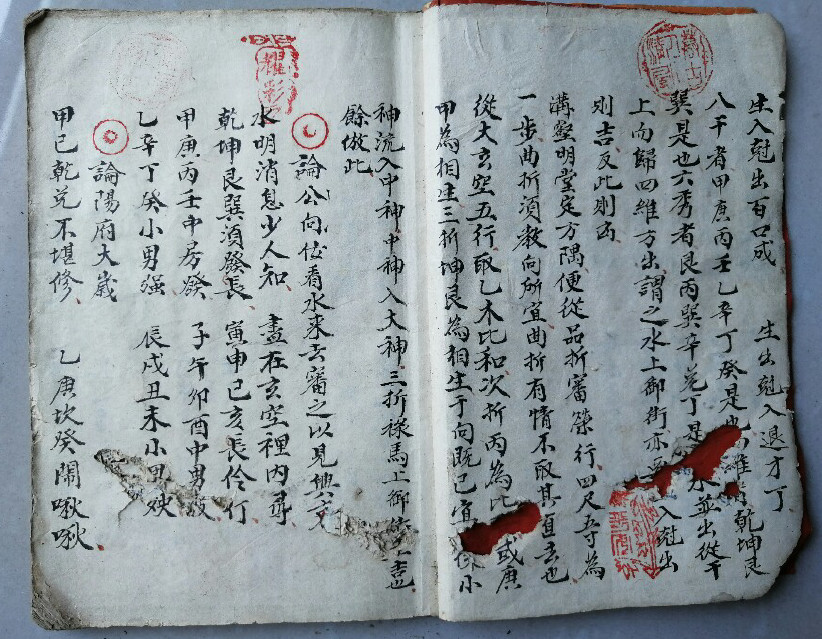 生入尅出百口成 生出尅入退才丁
八干者甲庚丙壬乙辛丁癸是也 維者乾坤艮
巽是也六秀者艮丙巽辛兌丁是 水並出從干
上向歸四維方出謂之水上御街亦 入尅出
則吉反此則凶
溝壑明堂定方隅便從品折審築行四尺五寸為
一步曲折須教向所宜曲折有情不取其直去也
從大玄空五行取乙木比和次折丙為比 或庚
甲為相生三折坤艮為相生于向既已宜 小
神流入中神中神入大神三折祿馬上御街 喜也
餘倣此
論公向位看水來去審之以見興
水明消息少人知 盡在玄空裡內尋
乾坤艮巽須發長 寅申巳亥長伶仃
甲庚丙壬中房發 子午卯酉中男
乙辛丁癸小男强 辰戌丑未小男殃
論陽府大嵗
甲己乾兌不堪修 乙庚坎癸鬧啾啾
耀彩